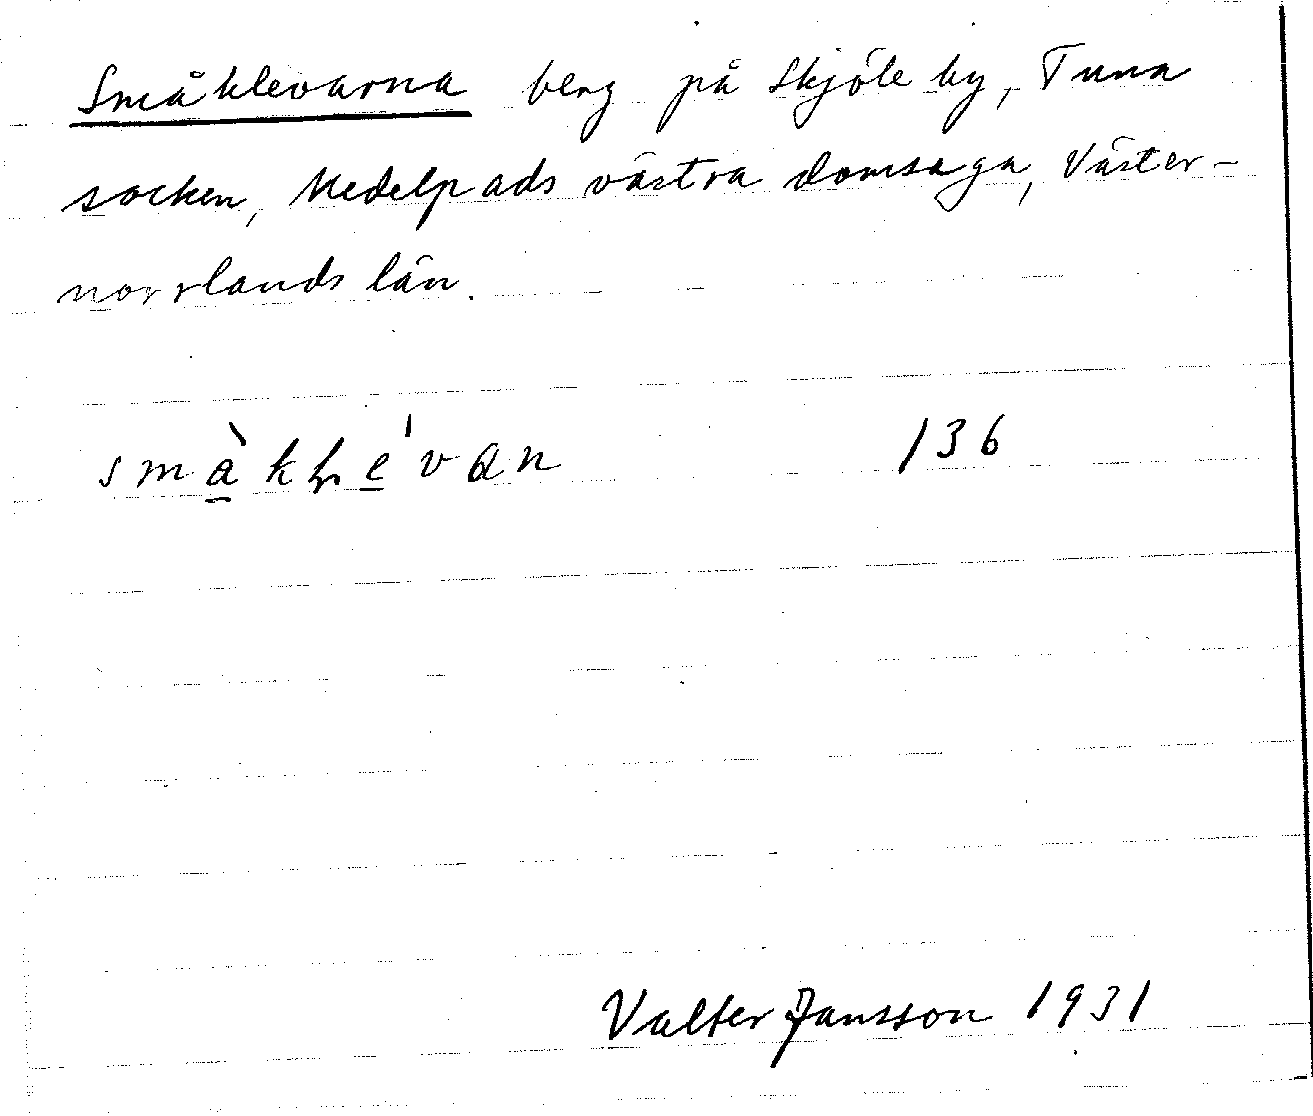 Småklevarna berg på Skjöle by, Tuna
socken, Medelpads västra domsaga, Väster-
norrlands län.
136
Valter Jansson 1931